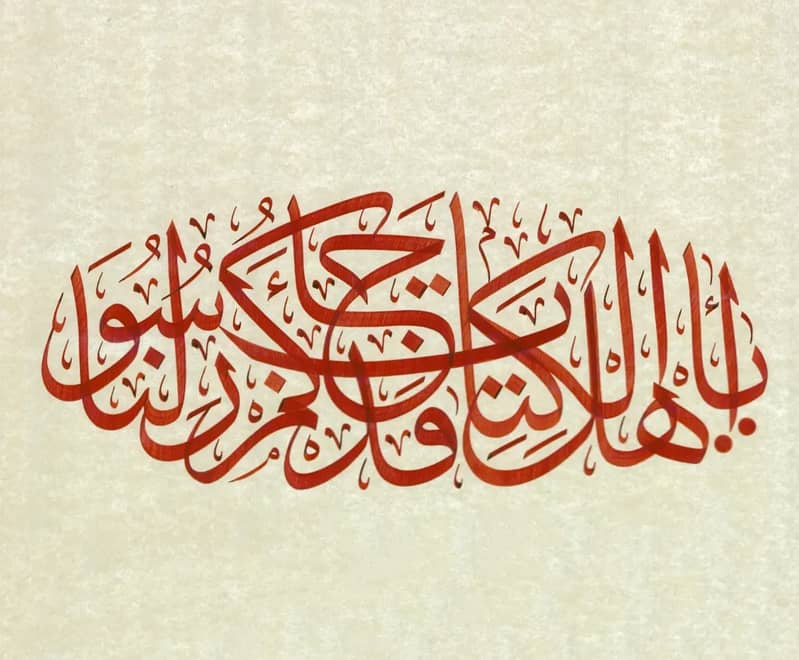 يا أهل الكتاب قد جاءكم رسولنا